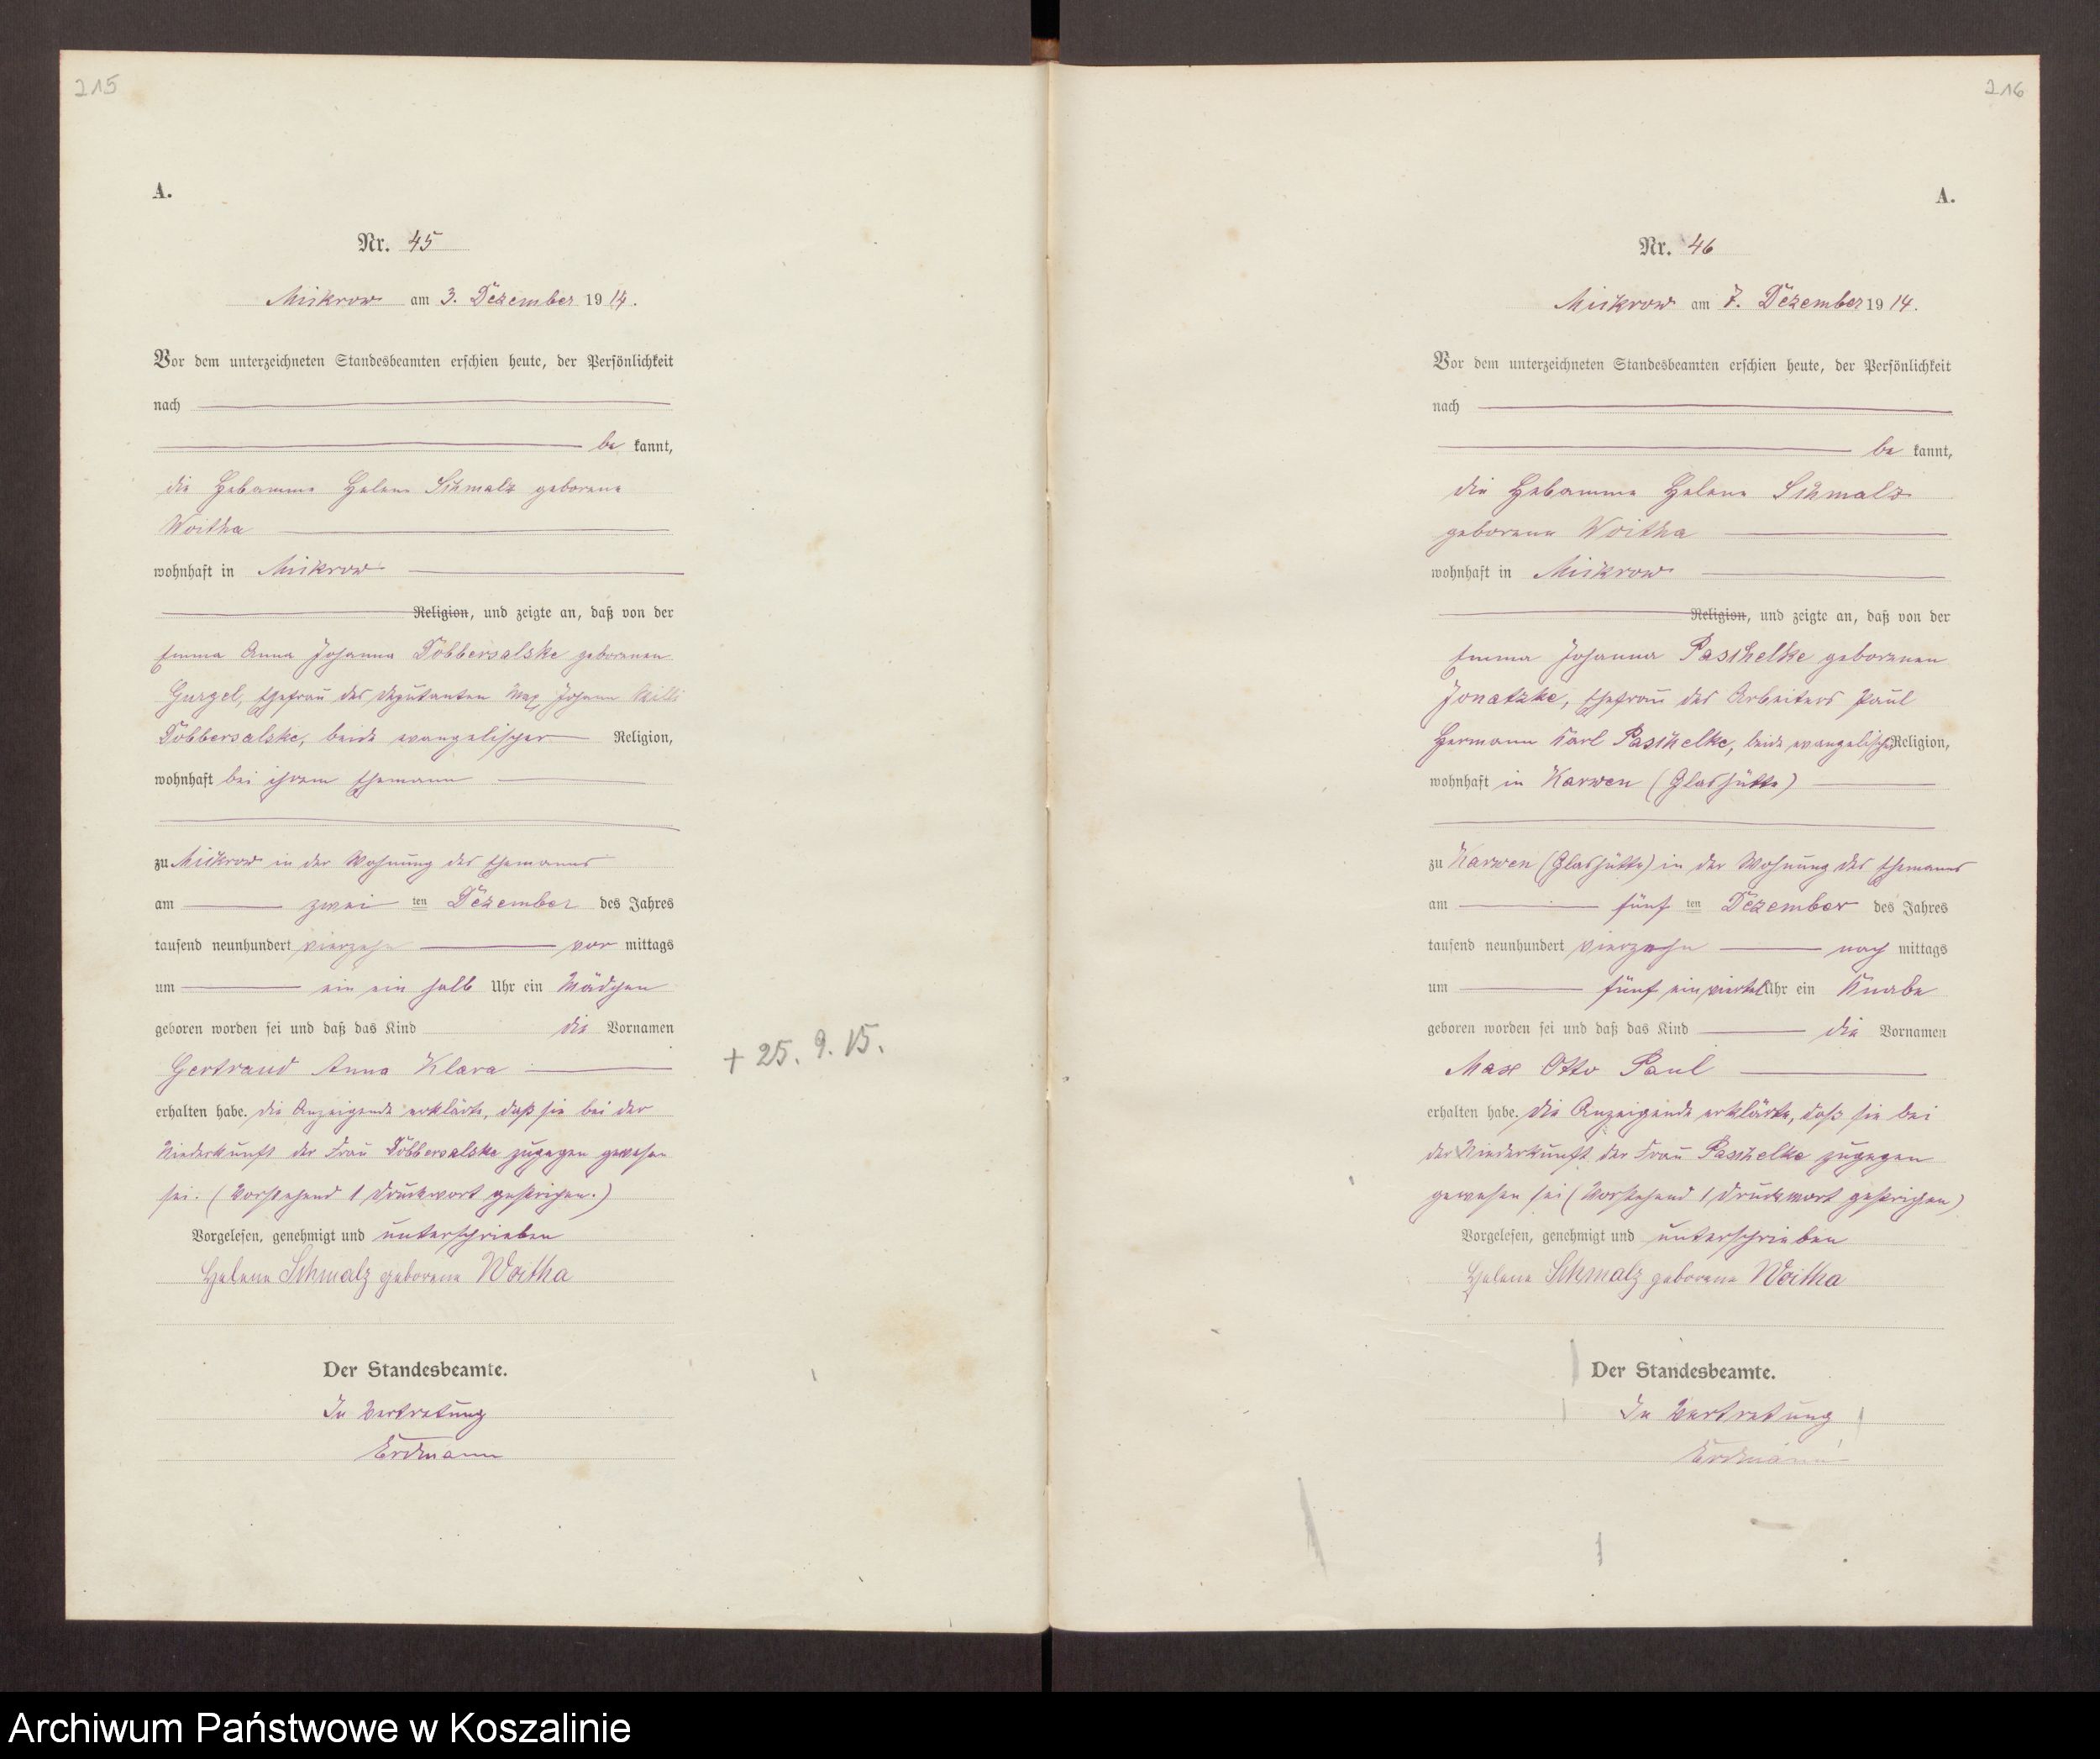 215
A.
Nr. 45
Mickrow am 3. Dezember 1914.
Vor dem unterzeichneten Standesbeamten erschien heute, der Persönlichkeit
nach
be kannt,
die Hebamme Helene Schmalz geborene
Woitha
wohnhaft in Mickrow
Religion, und zeigte an, daß von der
Emma Anna Johanna Döbbersalske geborenen
Gurgel, Ehefrau des Deputanten Max Johann Willi
Döbbersalske, beide evangelischer Religion,
wohnhaft bei ihrem Ehemann
zu Mickrow in der Wohnung des Ehemannes
am zwei ten Dezember des Jahres
tausend neunhundert vierzehn vor mittags
um ein ein halb Uhr ein Mädchen
geboren worden sei und daß das Kind die Vornamen
Gertraud Anna Klara
+ 25. 9. 15.
erhalten habe. die Anzeigende erklärte, daß sie bei der
Niederkunft der Frau Döbbersalske zugegen gewesen
sei. (Vorstehend 1 Druckwort gestrichen.)
Vorgelesen, genehmigt und unterschrieben
Helene Schmalz geborene Woitha
Der Standesbeamte.
In Vertretung
Erdmann
216
A.
Nr. 46
Mickrow am 7. Dezember 1914.
Vor dem unterzeichneten Standesbeamten erschien heute, der Persönlichkeit
nach
be kannt,
die Hebamme Helene Schmalz
geborene Woitha
wohnhaft in Mickrow
Religion, und zeigte an, daß von der
Emma Johanna Paschelke geborenen
Jonatzke, Ehefrau des Arbeiters Paul
Hermann Karl Paschelke, beide evangelischer Religion,
wohnhaft in Karwen (Glashütte)
zu Karwen (Glashütte) in der Wohnung des Ehemanns
am fünf ten Dezember des Jahres
tausend neunhundert vierzehn nach mittags
um fünf ein viertel Uhr ein Knabe
geboren worden sei und daß das Kind die Vornamen
Max Otto Paul
erhalten habe. die Anzeigende erklärte, daß sie bei
der Niederkunft der Frau Paschelke zugegen
gewesen sei (Vorstehend 1 Druckwort gestrichen)
Vorgelesen, genehmigt und unterschrieben
Helene Schmalz geborene Woitha
Der Standesbeamte.
In Vertretung
Erdmann
Archiwum Państwowe w Koszalinie